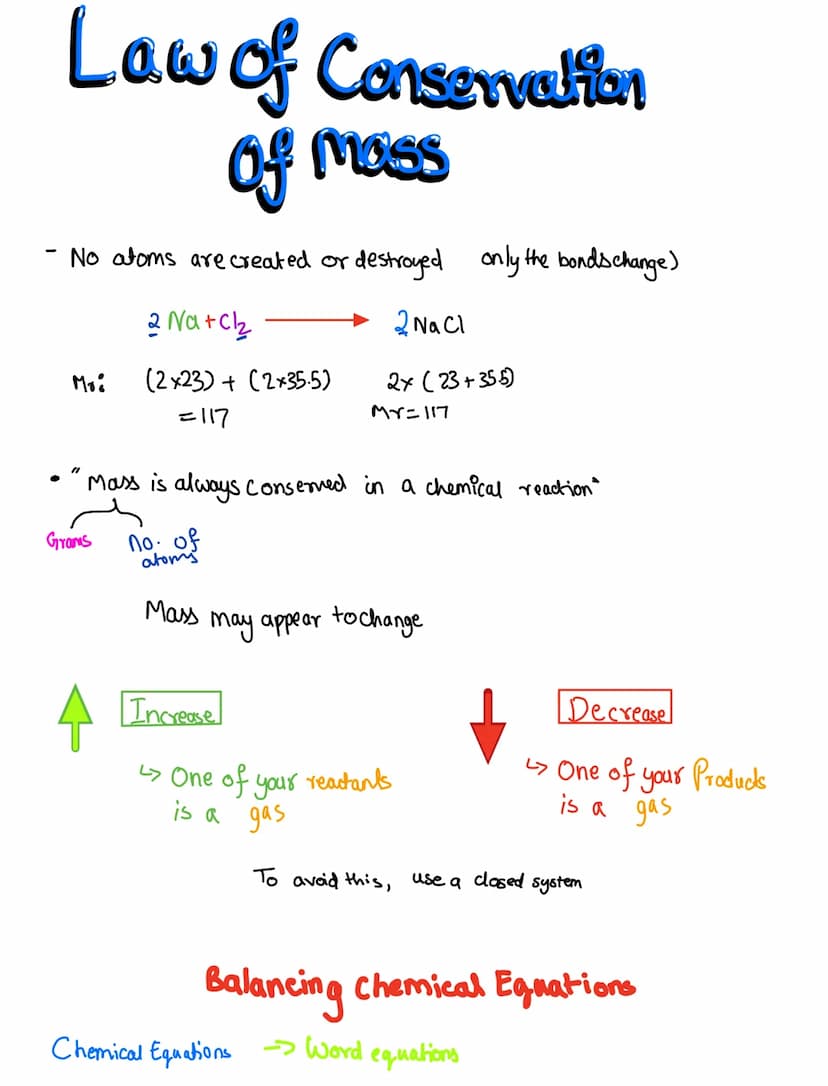 Law of Conservation
Of Mass
- No atoms are created or destroyed only the bonds change)
2 Na + Cl₂ → 2 NaCl
Mr: (2×23) + (2×35.5) 2× (23+35.5)
=117 Mr=117
• "Mass is always conserved in a chemical reaction"
Grams no. of
atoms
Mass may appear to change
Increase Decrease
↳ One of your reactants ↳ One of your Products
is a gas is a gas
To avoid this, use a closed system
Balancing Chemical Equations
Chemical Equations → Word equations